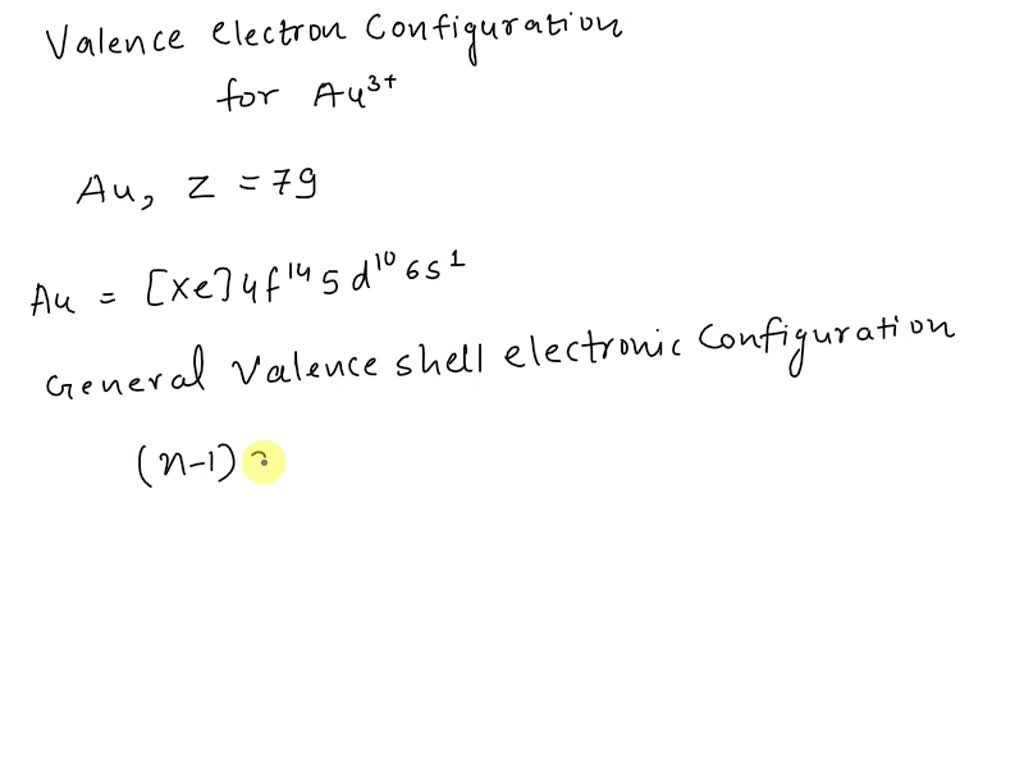 Valence electron Configuration
for Au³⁺
Au, Z = 79
Au = [Xe] 4f¹⁴ 5d¹⁰ 6s¹
General Valence shell electronic Configuration
(n-1)